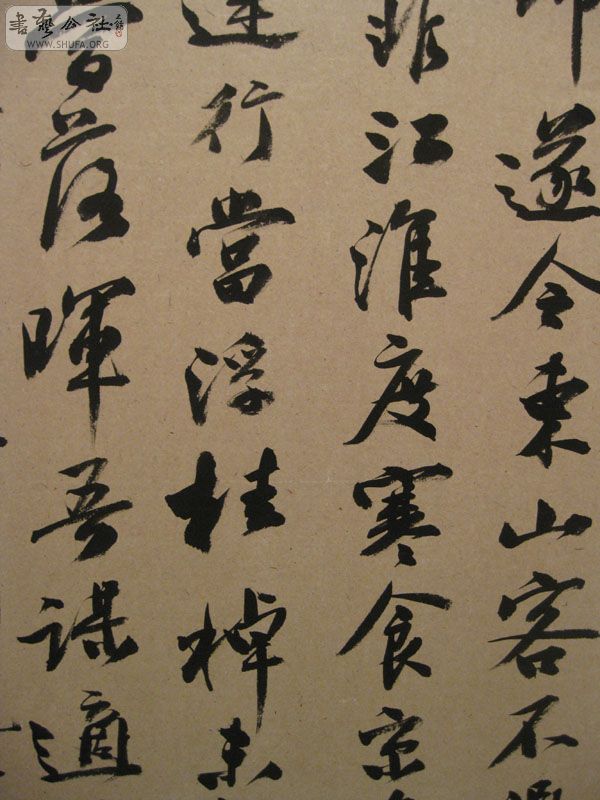 遂令東山客不
非江淮度寒食京
違行當浮桂棹未
當落暉吾謀適
書藝公社
WWW.SHUFA.ORG